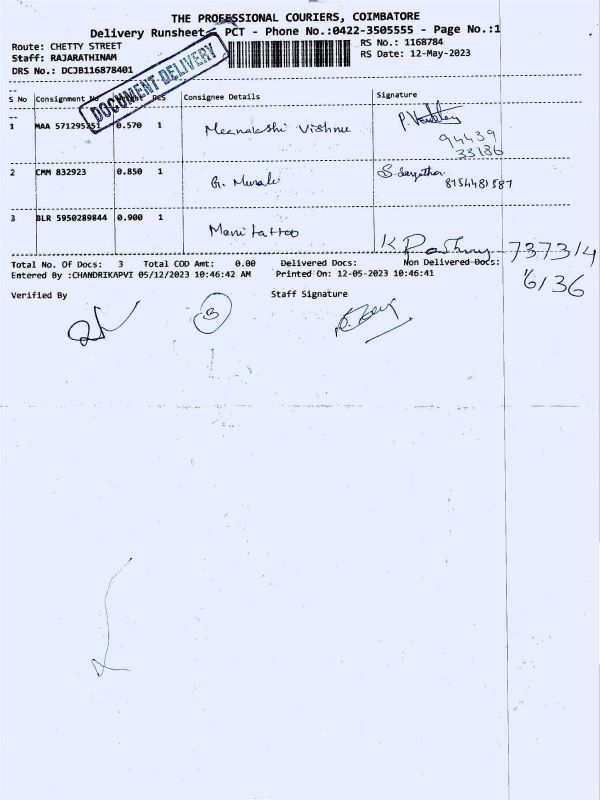 THE PROFESSIONAL COURIERS, COIMBATORE
Delivery Runsheet - PCT - Phone No.:0422-3505555 - Page No.:1
Route: CHETTY STREET
RS No.: 1168784
Staff: RAJARATHINAM
RS Date: 12-May-2023
DRS No.: DCJB116878401
DOCUMENT DELIVERY
S No Consignment No PCS Consignee Details Signature
1 MAA 571295251 0.570 1 Meenakshi Vishnu
94439
33186
2 CMM 832923 0.850 1 G. Murali
8154481587
3 BLR 5950289844 0.900 1 Mani tattoo
737314
6136
Total No. Of Docs: 3 Total COD Amt: 0.00 Delivered Docs: Non Delivered Docs:
Entered By :CHANDRIKAPVI 05/12/2023 10:46:42 AM Printed On: 12-05-2023 10:46:41
Verified By Staff Signature
B